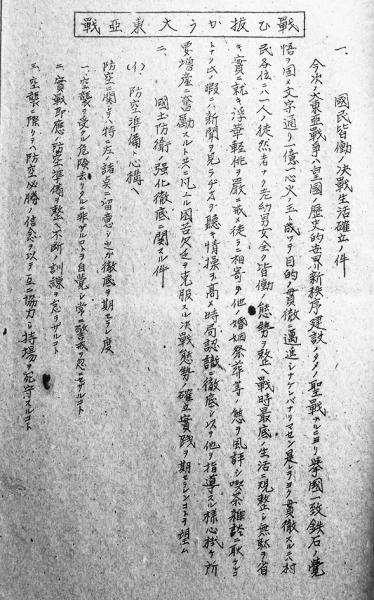 戦ひ抜かう大東亜戦
一、国民皆働ノ決戦生活確立ノ件
今次ノ大東亜戦争ハ皇国ノ歴史的世界新秩序建設ノタメノ聖戦ナルニヨリ挙国一致鉄石ノ覚
悟ヲ固メ文字通リ一億一心火ノ玉ト成ツテ目的ノ貫徹ニ邁進シナケレバナリマセン是レヲヨク貫徹スルニハ村
民各位ニハ一人ノ徒然者ナク老幼男女全ク皆働ノ態勢ヲ整ヘ戦時最底ノ生活ニ規整シ無駄ヲ省
キ、実ニ就キ浮華軽佻ヲ厳ニ戒メ徒ラニ相寄リ他ノ婚姻祭葬等ノ態ヲ風評シ喫茶雑談ニ耽ケルコ
トナク民暇ニハ新聞ヲ見ラヂオヲ聴キ情操ヲ高メ時局認識ニ徹底シ以ツテ他ヲ指導スル様心掛ケ所
要増産ニ奮励スルト共ニ凡ユル困苦欠乏ヲ克服スル決戦態勢ノ確立実践ヲ期セラレンコトヲ望ム
二、国土防衛ノ強化徹底ニ関スル件
(イ)防空準備ノ心構ヘ
防空ニ関シテ特ニ左ノ諸点ニ留意シ之ガ徹底ヲ期セラレ度
一、空襲ヲ受クル危険去リタルニ非ザルコトヲ自覚シ常ニ警戒ヲ忍ニセザルコト
二、実戦即応ノ防空準備ヲ整ヘ不断ノ訓練ヲ怠ラザルコト
三、空襲ニ際シテハ防空必勝ノ信念ヲ以ツテ互ニ協力シ持場ヲ死守スルコト